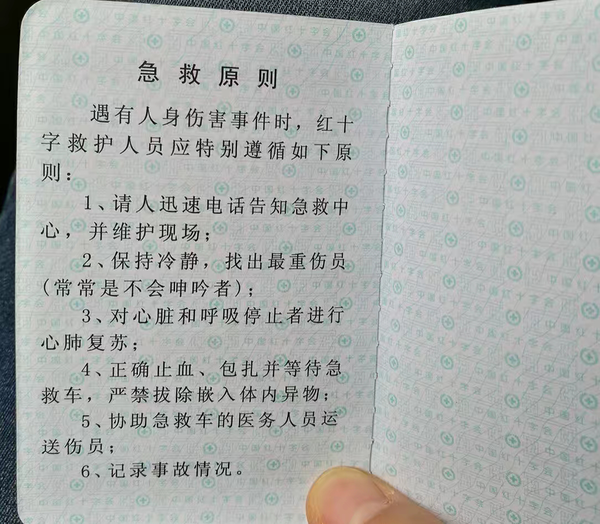 急救原则
遇有人身伤害事件时，红十
字救护人员应特别遵循如下原
则：
1、请人迅速电话告知急救中
心，并维护现场；
2、保持冷静，找出最重伤员
(常常是不会呻吟者)；
3、对心脏和呼吸停止者进行
心肺复苏；
4、正确止血、包扎并等待急
救车，严禁拔除嵌入体内异物；
5、协助急救车的医务人员运
送伤员；
6、记录事故情况。